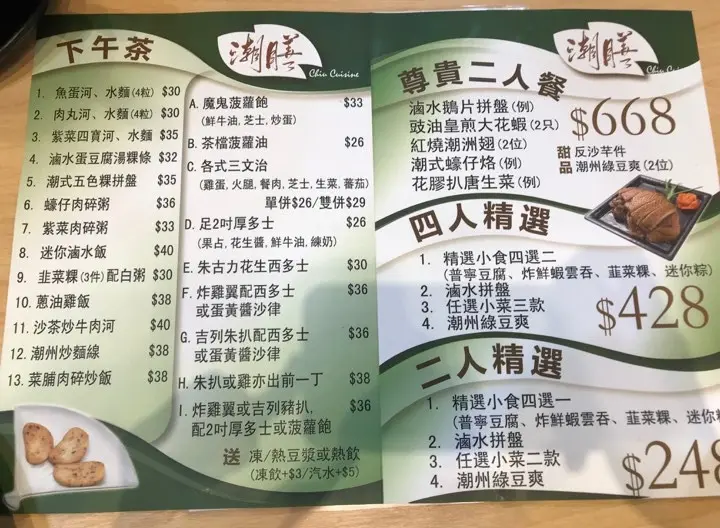 下午茶
潮膳
Chiu Cuisine
1. 魚蛋河、水麵(4粒) $30
2. 肉丸河、水麵(4粒) $30
3. 紫菜四寶河、水麵 $35
4. 滷水蛋豆腐湯粿條 $32
5. 潮式五色粿拼盤 $35
6. 蠔仔肉碎粥 $36
7. 紫菜肉碎粥 $33
8. 迷你滷水飯 $40
9. 韭菜粿(3件)配白粥 $30
10. 蔥油雞飯 $38
11. 沙茶炒牛肉河 $40
12. 潮州炒麵線 $38
13. 菜脯肉碎炒飯 $38
A. 魔鬼菠蘿飽 $33
(鮮牛油,芝士,炒蛋)
B. 茶檔菠蘿油 $26
C. 各式三文治
(雞蛋,火腿,餐肉,芝士,生菜,蕃茄)
單併$26/雙併$29
D. 足2吋厚多士 $26
(果占,花生醬,鮮牛油,練奶)
E. 朱古力花生西多士 $30
F. 炸雞翼配西多士 $36
或蛋黃醬沙律
G. 吉列朱扒配西多士 $36
或蛋黃醬沙律
H. 朱扒或雞亦出前一丁 $38
I. 炸雞翼或吉列豬扒, $36
配2吋厚多士或菠蘿飽
送 凍/熱豆漿或熱飲
(凍飲+$3/汽水+$5)
潮膳
Chiu Cuisine
尊貴二人餐
滷水鵝片拼盤(例)
豉油皇煎大花蝦(2只)
紅燒潮洲翅(2位)
潮式蠔仔烙(例)
花膠扒唐生菜(例)
$668
甜品 反沙芋件
潮州綠豆爽(2位)
四人精選
1. 精選小食四選二
(普寧豆腐、炸鮮蝦雲吞、韭菜粿、迷你粽)
2. 滷水拼盤
3. 任選小菜三款
4. 潮州綠豆爽
$428
二人精選
1. 精選小食四選一
(普寧豆腐、炸鮮蝦雲吞、韭菜粿、迷你
2. 滷水拼盤
3. 任選小菜二款
4. 潮州綠豆爽
$248